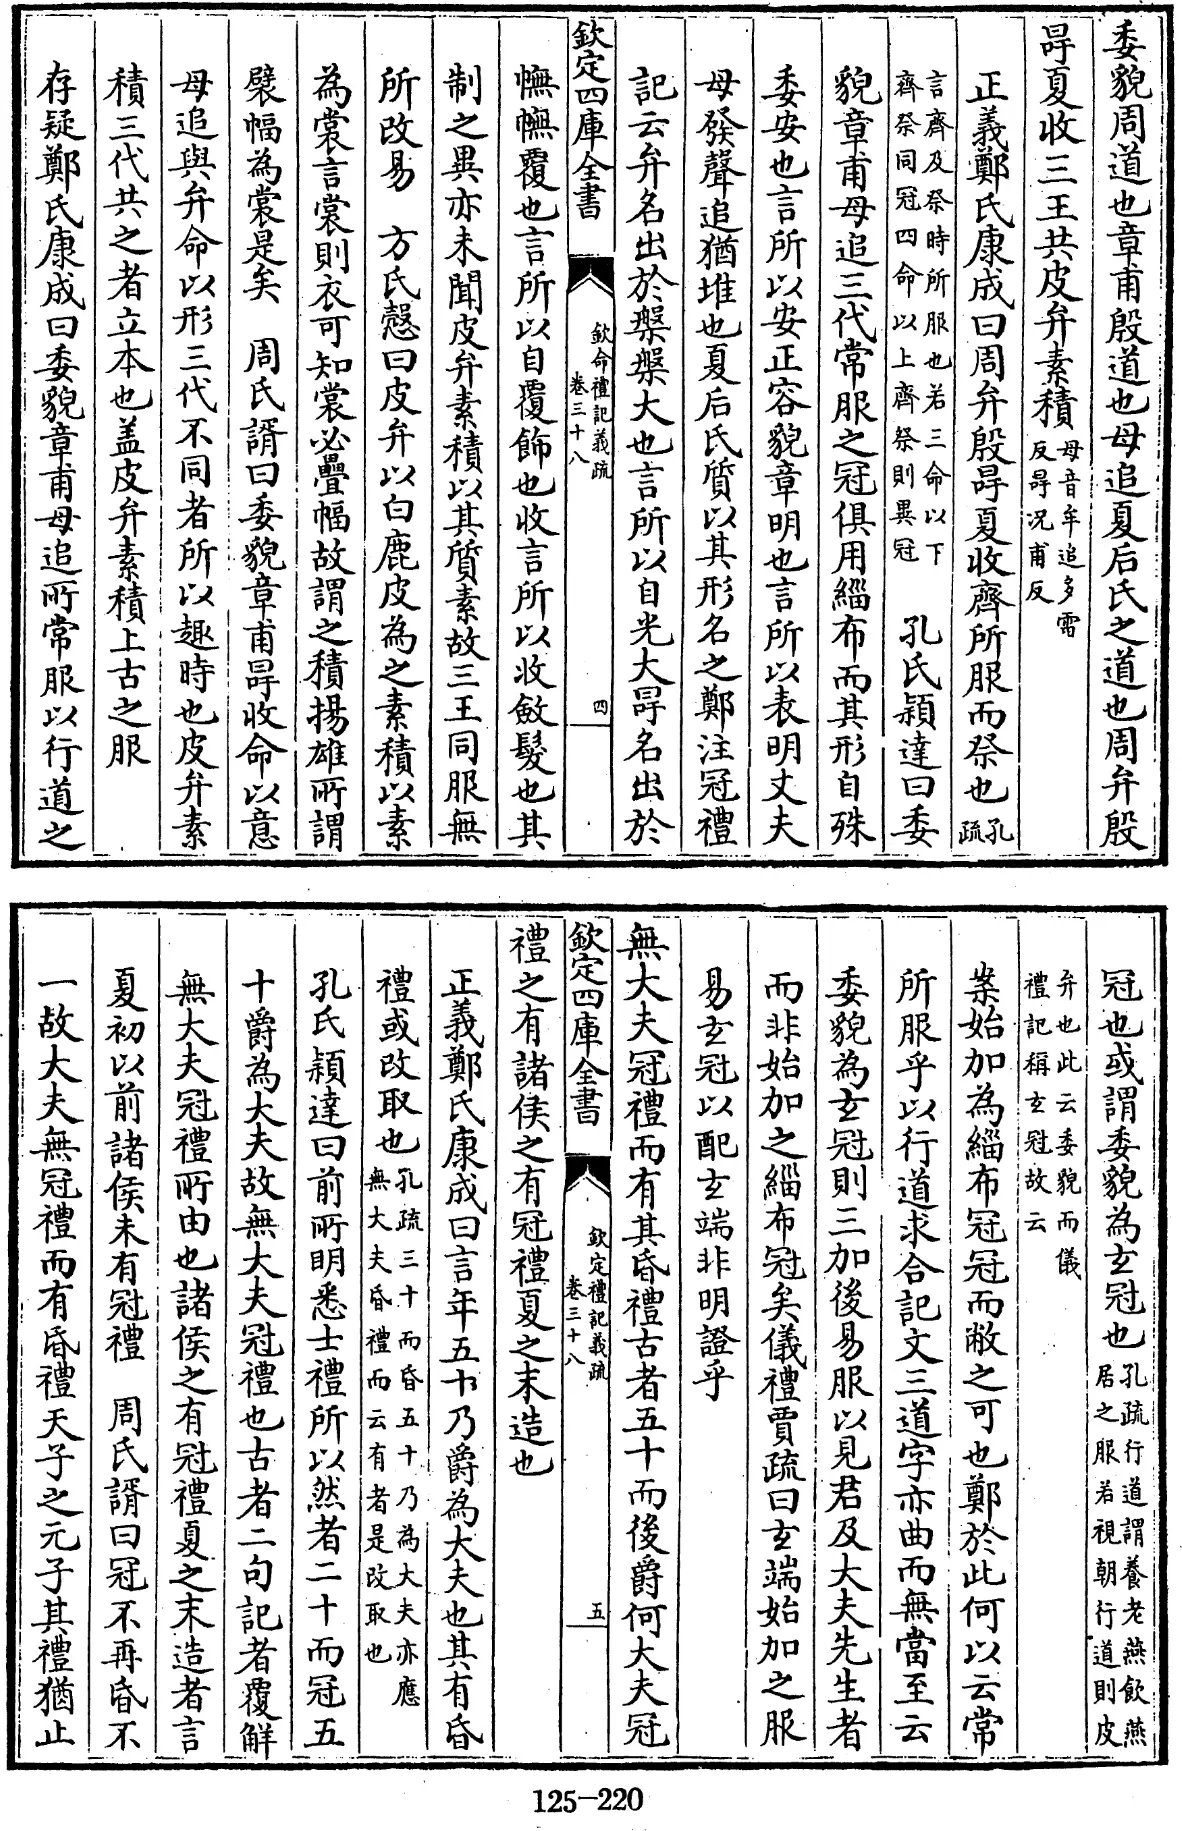 委貌周道也章甫殷道也毋追夏后氏之道也周弁殷
冔夏收三王共皮弁素積毋音牟追多雷
反冔况甫反
正義鄭氏康成曰周弁殷冔夏收齊所服而祭也孔
疏
言齊及祭時所服也若三命以下
齊祭同冠四命以上齊祭則異冠
孔氏穎達曰委
貌章甫毋追三代常服之冠俱用緇布而其形自殊
委安也言所以安正容貌章明也言所以表明丈夫
毋發聲追猶堆也夏后氏質以其形名之鄭注冠禮
記云弁名出於槃槃大也言所以自光大冔名出於
欽定四庫全書
欽定禮記義疏
卷三十八
四
幠幠覆也言所以自覆飾也收言所以收斂髮也其
制之異亦未聞皮弁素積以其質素故三王同服無
所改易 方氏慤曰皮弁以白鹿皮為之素積以素
為裳言裳則衣可知裳必疊幅故謂之積揚雄所謂
襞幅為裳是矣 周氏諝曰委貌章甫冔收命以意
毋追與弁命以形三代不同者所以趣時也皮弁素
積三代共之者立本也盖皮弁素積上古之服
存疑鄭氏康成曰委貌章甫毋追所常服以行道之
冠也或謂委貌為玄冠也孔疏行道謂養老燕飲燕
居之服若視朝行道則皮
弁也此云委貌而儀
禮記稱玄冠故云
案始加為緇布冠冠而敝之可也鄭於此何以云常
所服乎以行道求合記文三道字亦曲而無當至云
委貌為玄冠則三加後易服以見君及大夫先生者
而非始加之緇布冠矣儀禮賈疏曰玄端始加之服
易玄冠以配玄端非明證乎
無大夫冠禮而有其昏禮古者五十而後爵何大夫冠
欽定四庫全書
欽定禮記義疏
卷三十八
五
禮之有諸侯之有冠禮夏之末造也
正義鄭氏康成曰言年五十乃爵為大夫也其有昏
禮或改取也孔疏三十而昏五十乃為大夫亦應
無大夫昏禮而云有者是改取也
孔氏穎達曰前所明悉士禮所以然者二十而冠五
十爵為大夫故無大夫冠禮也古者二句記者覆解
無大夫冠禮所由也諸侯之有冠禮夏之末造者言
夏初以前諸侯未有冠禮 周氏諝曰冠不再昏不
一故大夫無冠禮而有昏禮天子之元子其禮猶止
125-220